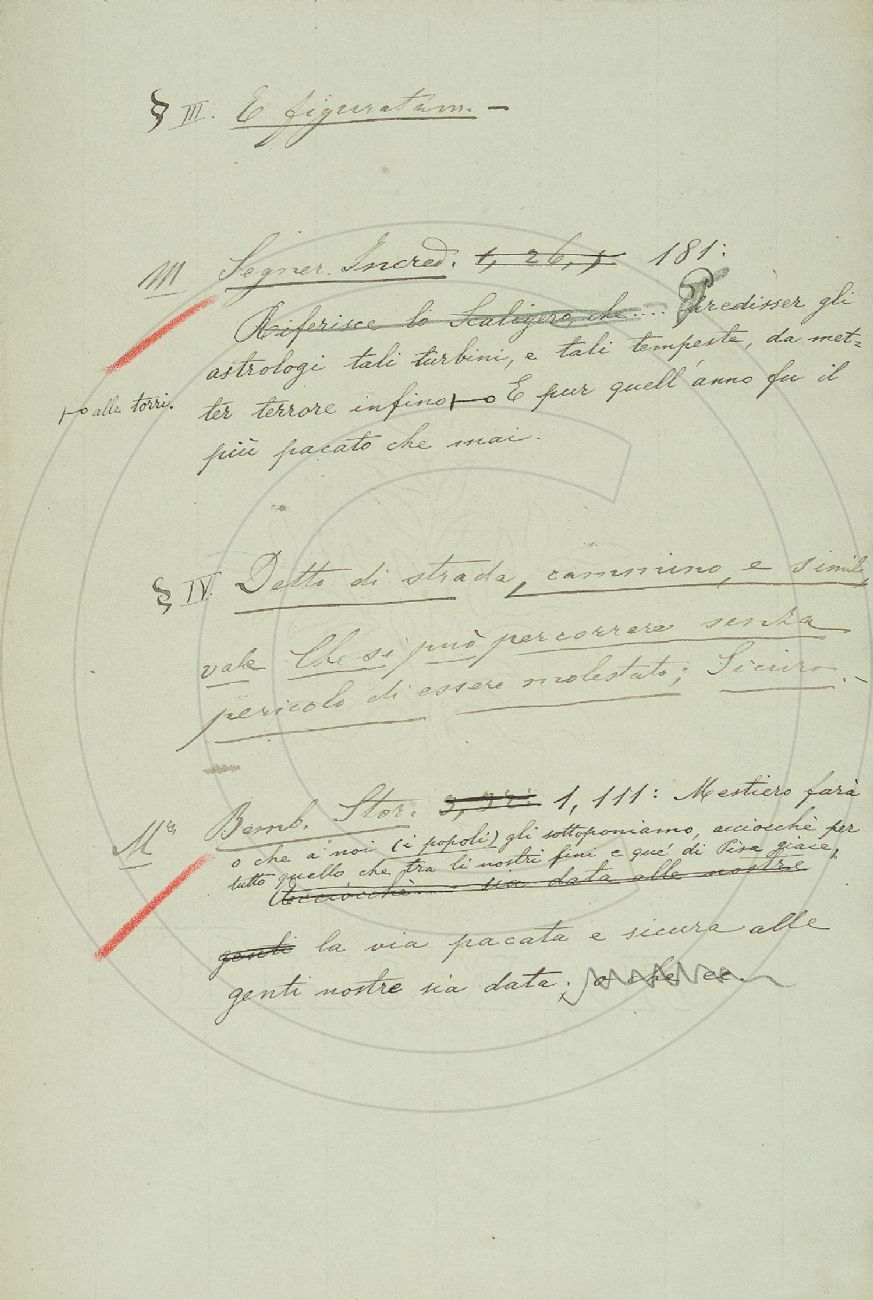 § III. E figuratam. —
M Segner. Incred. 1, 26, 1 181:
Riferisce lo Scaligero, che.... Predisser gli
astrologi tali turbini, e tali tempeste, da met=
alle torri.
ter terrore infino E pur quell'anno fu il
più pacato che mai.
§ IV. Detto di strada, cammino, e simile,
vale Che si può percorrere senza
pericolo di essere molestato; Sicuro. -
Bemb. Stor. 1, 111: Mestiero farà
o che a noi (i popoli) gli sottoponiamo, acciocchè per
tutto quello che fra li nostri fini e que' di Pisa giace,
Acciocchè.... sia data alle nostre
genti la via pacata e sicura alle
genti nostre sia data; o che ec.